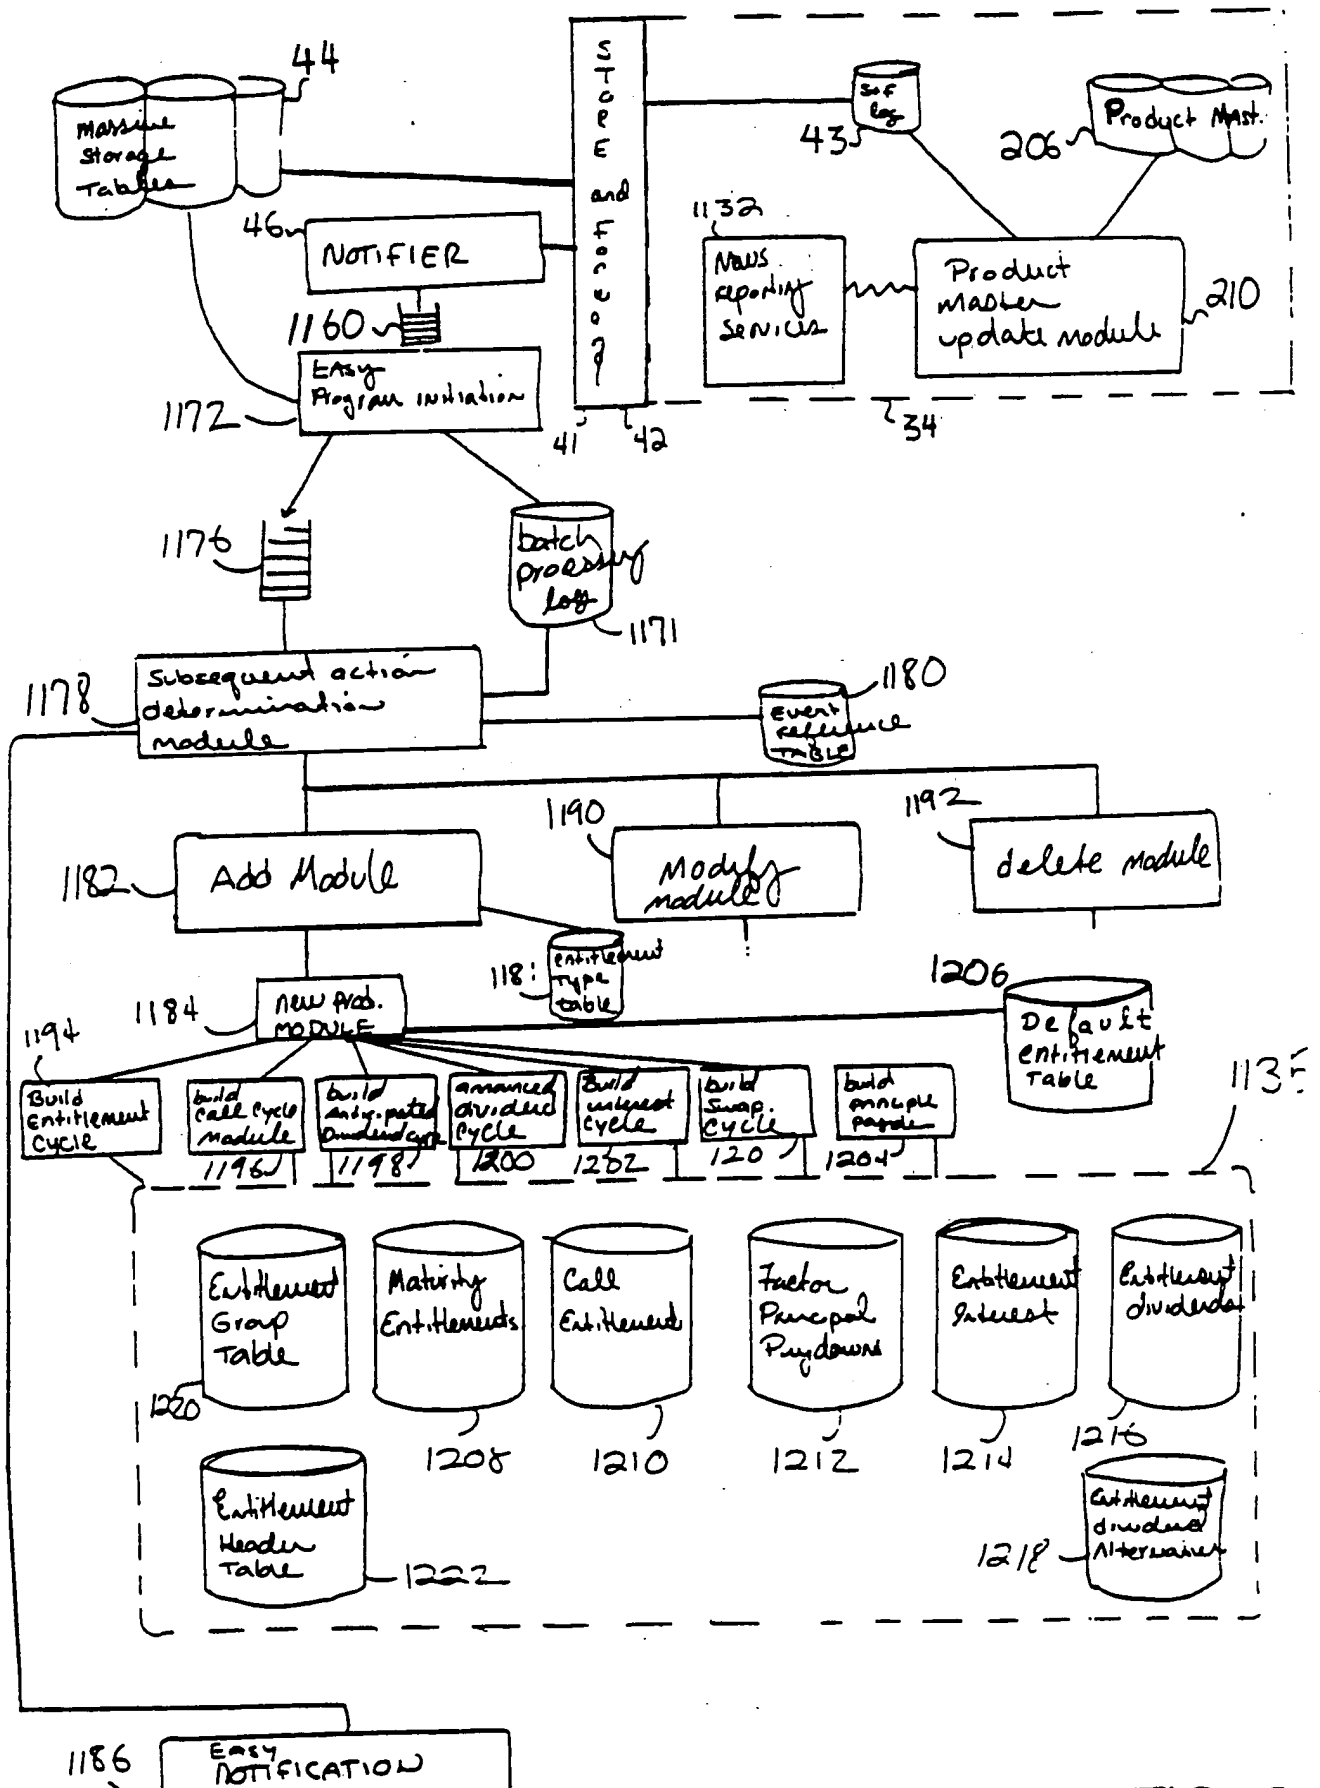 44
Massive
Storage
Tables
STORE and Forward
S&F
log
43
Product Mast.
206
46
NOTIFIER
1132
News
reporting
Services
Product
Master
update module
210
1160
EASY
Program initiation
1172
41
42
34
1176
batch
processing
log
1171
1178
Subsequent action
determination
module
1180
Event
reference
TABLE
1190
1192
1182
Add Module
Modify
module
delete module
118
entitlement
Type
table
1206
Default
entitlement
Table
1184
new prod.
MODULE
1194
113
Build
Entitlement
Cycle
build
Call Cycle
Module
build
Anticipated
Dividend cycle
announced
dividend
cycle
Build
interest
cycle
build
Swap.
cycle
build
principle
1196
1198
1200
1202
120
1204
Entitlement
Group
Table
Maturity
Entitlements
Call
Entitlement
Factor
Principal
Paydowns
Entitlement
Interest
Entitlement
dividends
1220
1208
1210
1212
1214
1216
Entitlement
Header
Table
1222
Entitlement
dividend
Alternatives
1218
1186
EASY
NOTIFICATION